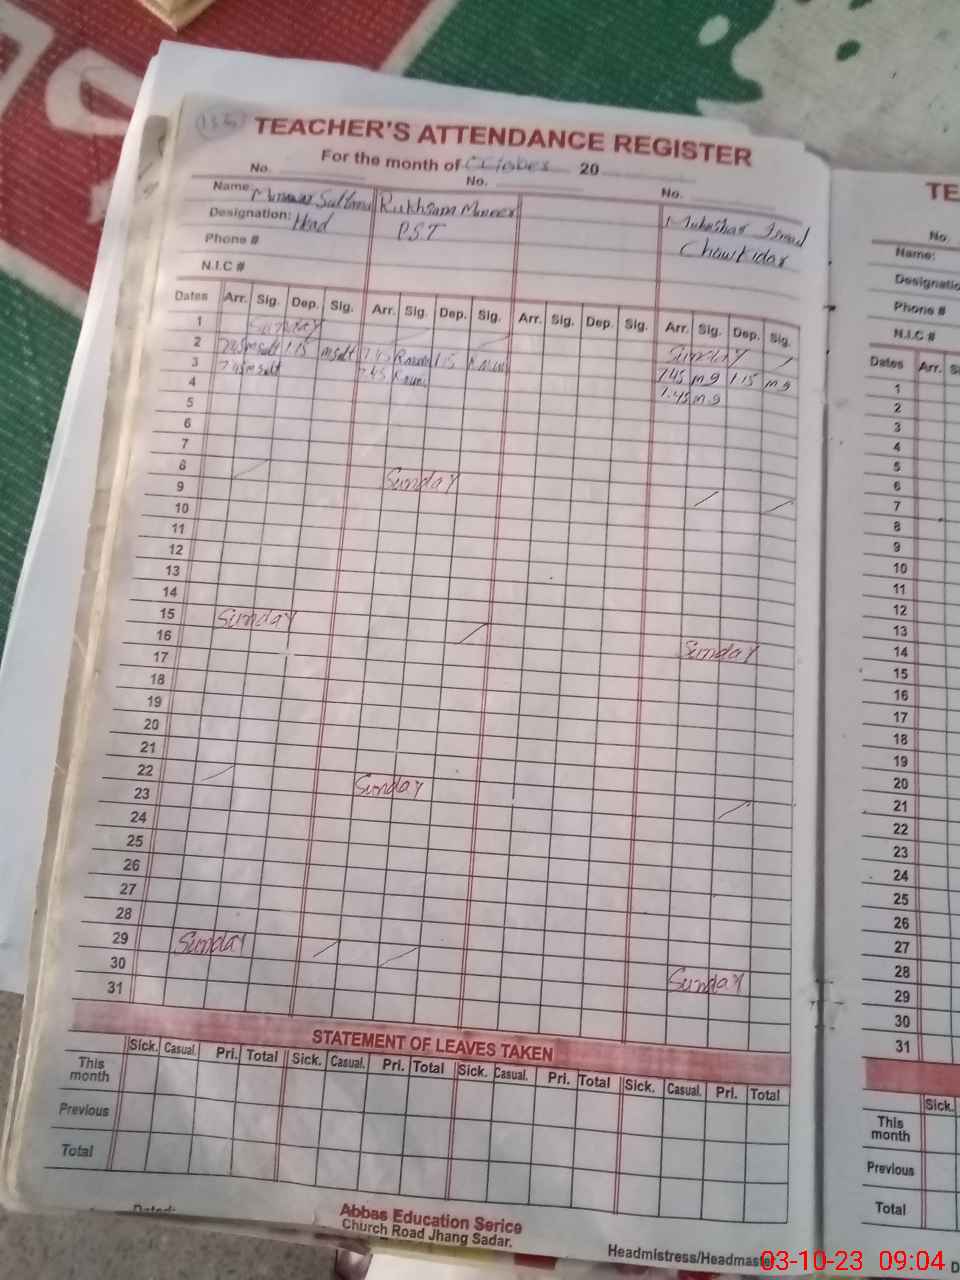 TEACHER'S ATTENDANCE REGISTER
For the month of October 20
No. No. No.
Name: Sultana Rukhsana Muneer
Designation: Head P.S.T Chowkidar
Phone #
N.I.C #
Dates Arr. Sig. Dep. Sig. Arr. Sig. Dep. Sig. Arr. Sig. Dep. Sig. Arr. Sig. Dep. Sig.
1 Sunday Sunday
2 7.45 1.15 7.45 1.15 7.45 m g 1.15 m g
3 7.45 7.45 7.45 m g
4
5
6
7
8 Sunday
9
10
11
12
13
14
15 Sunday Sunday
16
17
18
19
20
21
22 Sunday
23
24
25
26
27
28
29 Sunday Sunday
30
31
STATEMENT OF LEAVES TAKEN
Sick. Casual. Pri. Total Sick. Casual. Pri. Total Sick. Casual. Pri. Total Sick. Casual. Pri. Total
This month
Previous
Total
Dated:
Abbas Education Serice
Church Road Jhang Sadar.
Headmistress/Headmaste
TE
No
Name:
Designatio
Phone #
N.I.C #
Dates Arr. S
1
2
3
4
5
6
7
8
9
10
11
12
13
14
15
16
17
18
19
20
21
22
23
24
25
26
27
28
29
30
31
Sick.
This month
Previous
Total
D
03-10-23 09:04